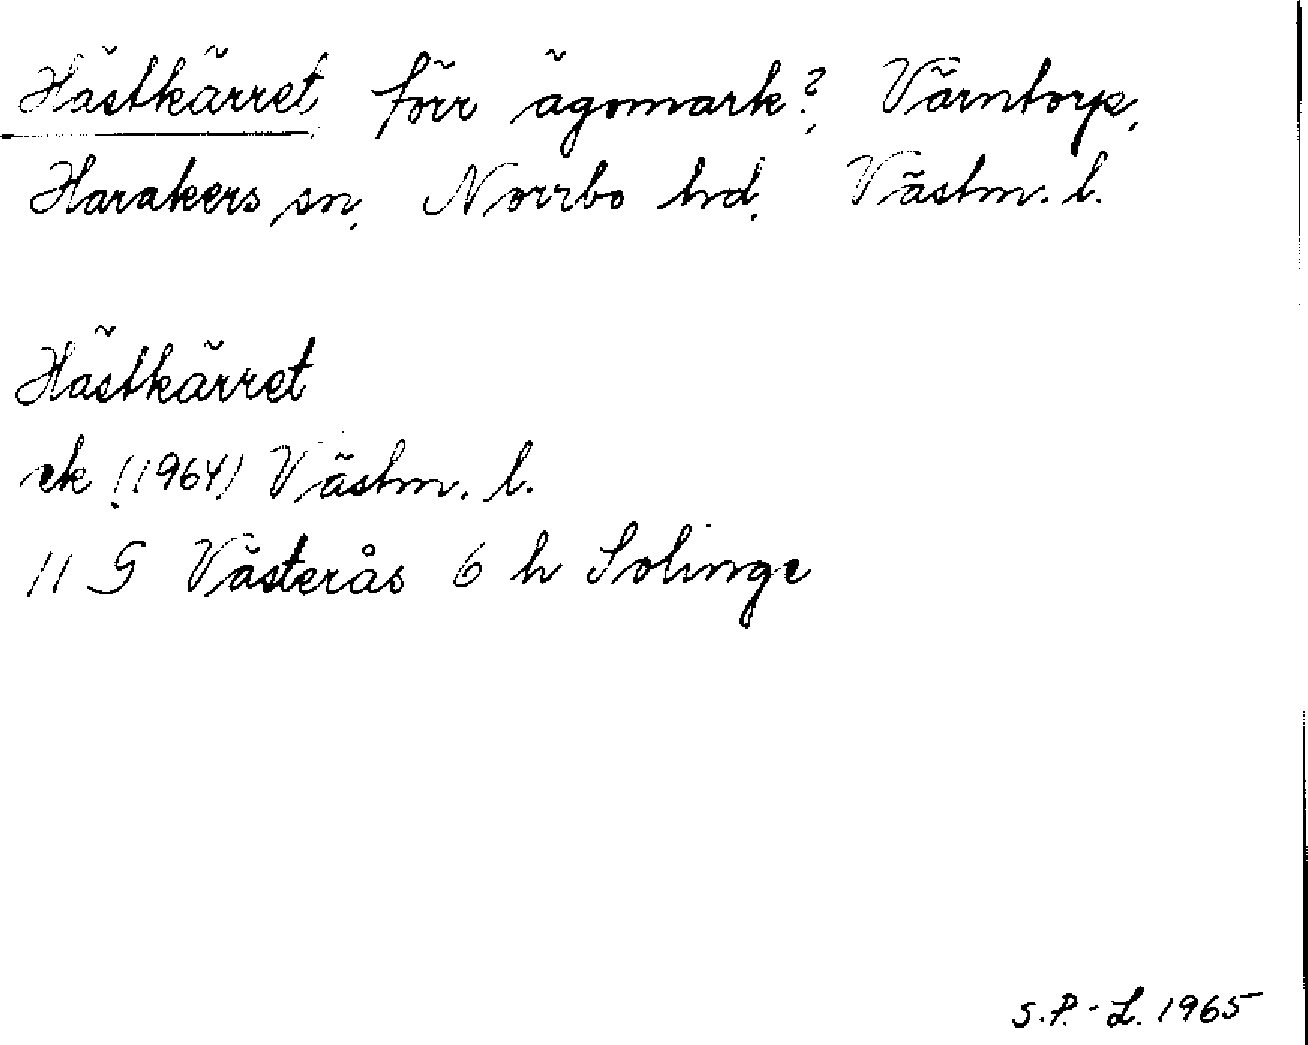 Hästkärret förr ägomark?, Värntorp,
Harakers sn, Norrbo hd, Västm. l.
Hästkärret
ek (1964) Västm. l.
11 G Västerås 6 h Solinge
S.P.-L. 1965